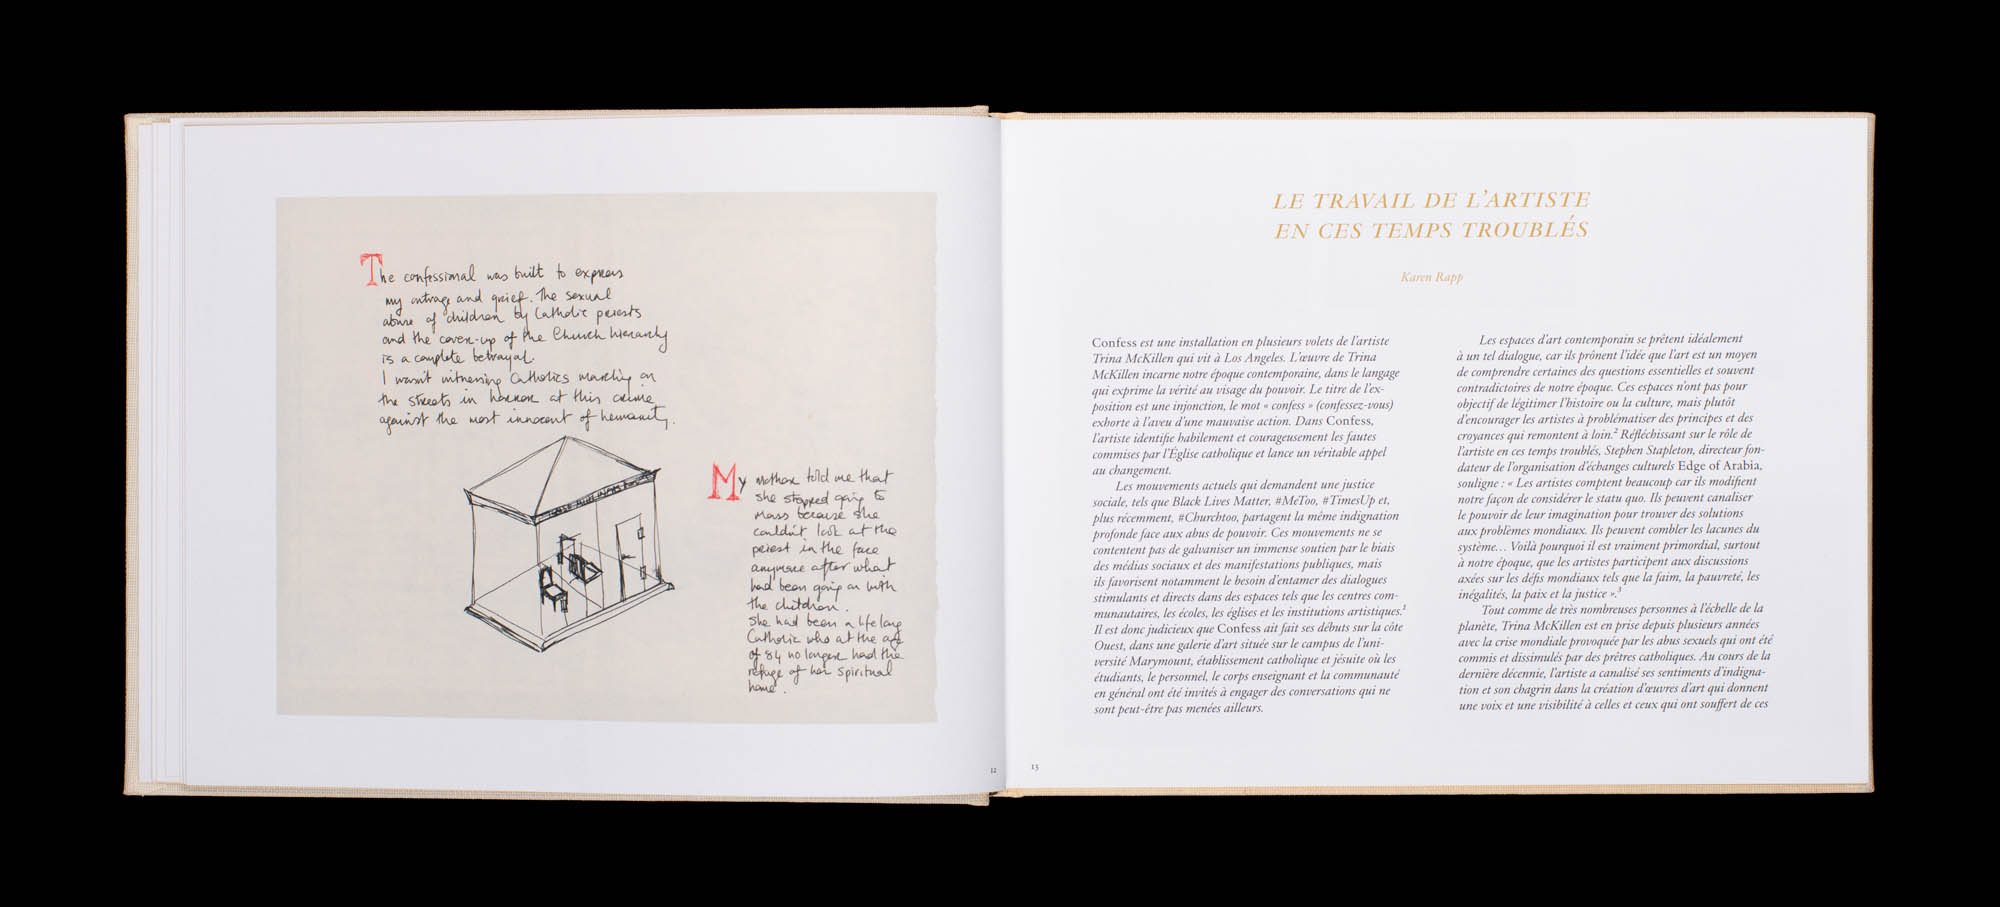 The confessional was built to express
my outrage and grief. The sexual
abuse of children by Catholic priests
and the cover-up of the Church hierarchy
is a complete betrayal.
I wasn't witnessing Catholics marching in
the streets in horror at this crime
against the most innocent of humanity.
My mother told me that
she stopped going to
Mass because she
couldn't look at the
priest in the face
anymore after what
had been going on with
the children.
She had been a life long
Catholic who at the age
of 84 no longer had the
refuge of her spiritual
home.
12
LE TRAVAIL DE L'ARTISTE
EN CES TEMPS TROUBLÉS
Karen Rapp
Confess est une installation en plusieurs volets de l'artiste
Trina McKillen qui vit à Los Angeles. L'œuvre de Trina
McKillen incarne notre époque contemporaine, dans le langage
qui exprime la vérité au visage du pouvoir. Le titre de l'ex-
position est une injonction, le mot « confess » (confessez-vous)
exhorte à l'aveu d'une mauvaise action. Dans Confess,
l'artiste identifie habilement et courageusement les fautes
commises par l'Église catholique et lance un véritable appel
au changement.
Les mouvements actuels qui demandent une justice
sociale, tels que Black Lives Matter, #MeToo, #TimesUp et,
plus récemment, #Churchtoo, partagent la même indignation
profonde face aux abus de pouvoir. Ces mouvements ne se
contentent pas de galvaniser un immense soutien par le biais
des médias sociaux et des manifestations publiques, mais
ils favorisent notamment le besoin d'entamer des dialogues
stimulants et directs dans des espaces tels que les centres com-
munautaires, les écoles, les églises et les institutions artistiques.¹
Il est donc judicieux que Confess ait fait ses débuts sur la côte
Ouest, dans une galerie d'art située sur le campus de l'uni-
versité Marymount, établissement catholique et jésuite où les
étudiants, le personnel, le corps enseignant et la communauté
en général ont été invités à engager des conversations qui ne
sont peut-être pas menées ailleurs.
Les espaces d'art contemporain se prêtent idéalement
à un tel dialogue, car ils prônent l'idée que l'art est un moyen
de comprendre certaines des questions essentielles et souvent
contradictoires de notre époque. Ces espaces n'ont pas pour
objectif de légitimer l'histoire ou la culture, mais plutôt
d'encourager les artistes à problématiser des principes et des
croyances qui remontent à loin.² Réfléchissant sur le rôle de
l'artiste en ces temps troublés, Stephen Stapleton, directeur fon-
dateur de l'organisation d'échanges culturels Edge of Arabia,
souligne : « Les artistes comptent beaucoup car ils modifient
notre façon de considérer le statu quo. Ils peuvent canaliser
le pouvoir de leur imagination pour trouver des solutions
aux problèmes mondiaux. Ils peuvent combler les lacunes du
système… Voilà pourquoi il est vraiment primordial, surtout
à notre époque, que les artistes participent aux discussions
axées sur les défis mondiaux tels que la faim, la pauvreté, les
inégalités, la paix et la justice ».³
Tout comme de très nombreuses personnes à l'échelle de la
planète, Trina McKillen est en prise depuis plusieurs années
avec la crise mondiale provoquée par les abus sexuels qui ont été
commis et dissimulés par des prêtres catholiques. Au cours de la
dernière décennie, l'artiste a canalisé ses sentiments d'indigna-
tion et son chagrin dans la création d'œuvres d'art qui donnent
une voix et une visibilité à celles et ceux qui ont souffert de ces
13